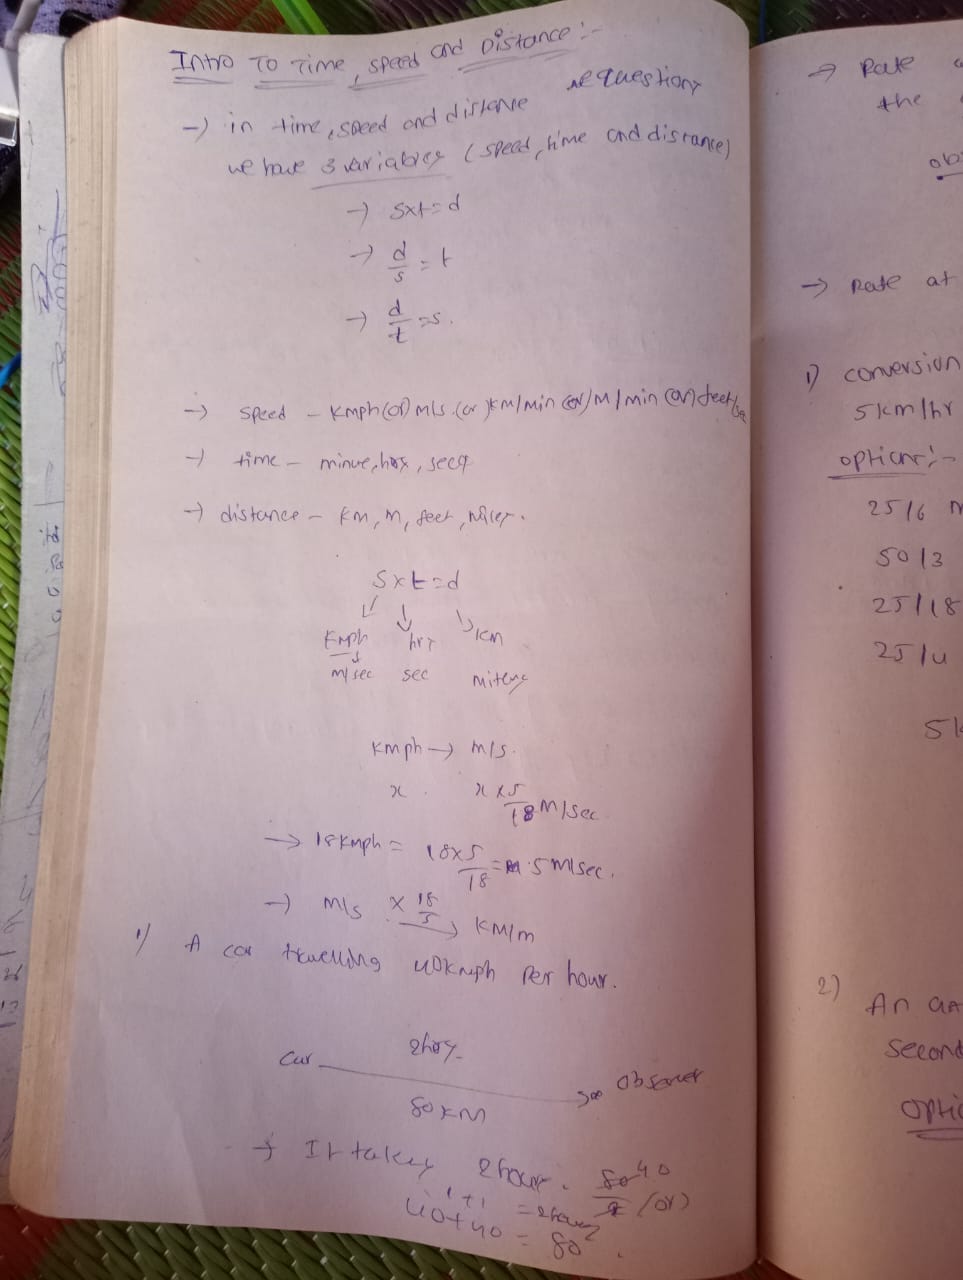 Intro To Time, speed and Distance :-
-> in time, speed and distance questions
we have 3 variables (speed, time and distance)
-> sxt=d
-> d/s = t
-> d/t = s.
-> speed - Kmph (or) m/s (or) km/min (or) M/min (or) feet/sec
-> time - minue, hrs, secs
-> distance - KM, M, feet, miles.
Sxt=d
Kmph hrs KM
m/sec sec
Kmph -> m/s.
x. x x 5/18 M/sec
-> 18Kmph = 18x5/18 = 5 m/sec.
-> M/s x 18/5 KM/m
1) A car travelling 40kmph Per hour.
2hrs
Car Observer
80 KM
-> It takes 2 hour. 80 40 (or)
1+1 = 2hours
40+40 = 80.
-> Rate
the
-> Rate at
1) conversion
5 km/hr
option:-
25/6 m
50/3
25/18
2) An
second
optio